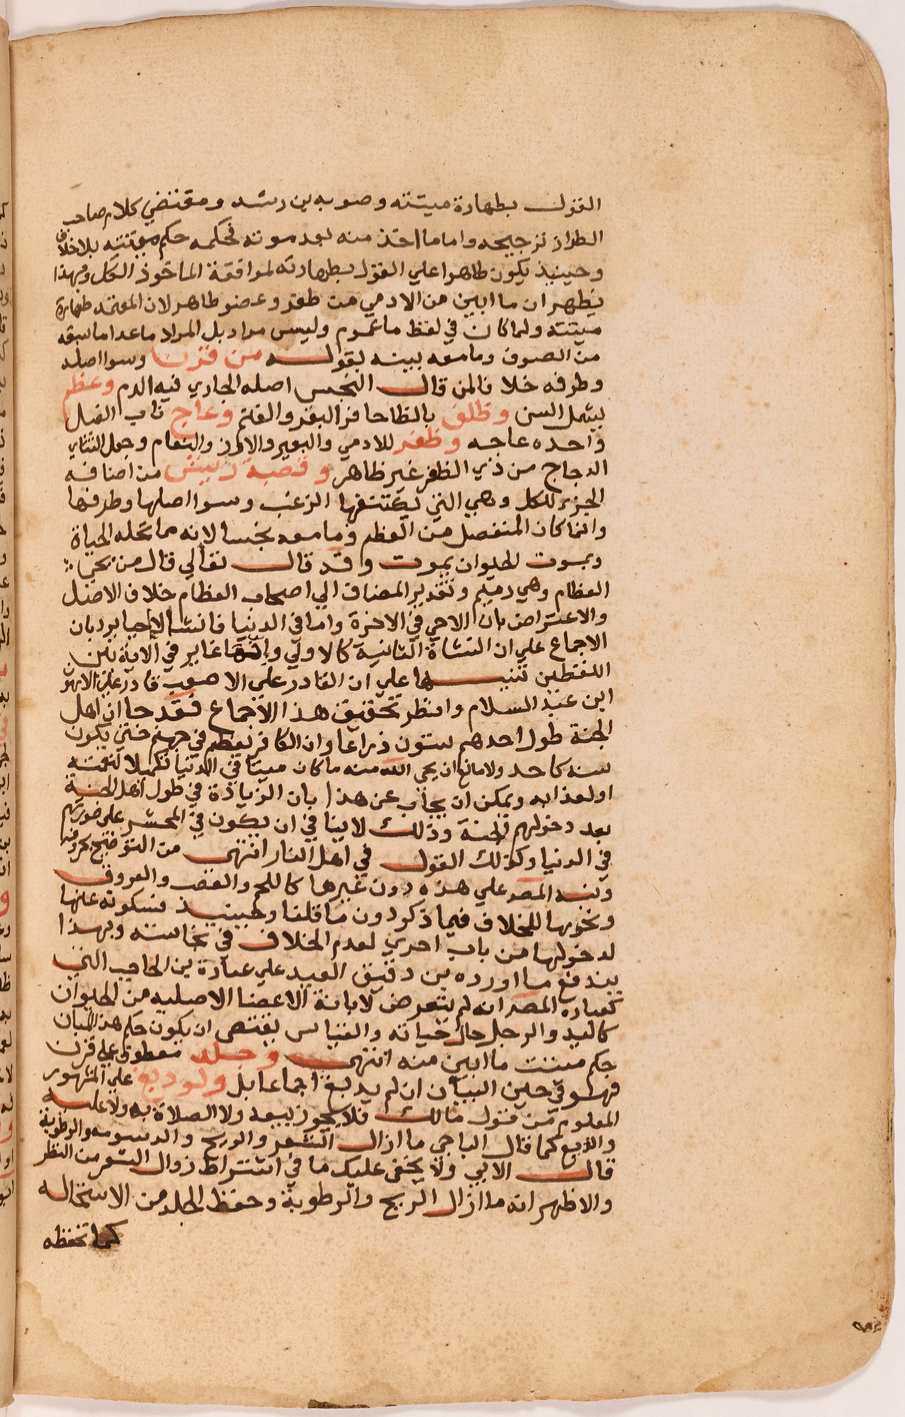 القول بطهارة ميتته وصوبه بن رشد ومقتضي كلام صاحب
الطراز ترجيحه واما ما اخذ منه بعد موته فحكمه حكم ميتته بلا خلاف
وحينيذ يكون طاهرا علي القول بطهارته لموافقة الماخوذ الكل وبهذا
يظهر ان ما ابين من الادمي من ظفر وعضو طاهر لان المعتمد طهارة
ميتته ولما كان في لفظ ما عموم وليس مراد بل المراد ما عدا ما سبقه
من الصوف وما معه بينه بقوله من قرن وسوا اصله
وطرفه خلافا لمن قال النجس اصله الجاري فيه الدم وعظم
يشمل السن وظلف بالظا حافر البقر والغنم وعاج ناب الفيل
واحده عاجه وظفر للادمي والبعير والاوز والنعام وجعل التتاي
الدجاج من ذي الظفر غير ظاهر وقصبة ريش من اضافة
الجزء للكل وهي التي يكتنفها الزغب وسوا اصلها وطرفها
وانما كان المنفصل من العظم وما معه نجسا لانه مما تحله الحياة
وبموت الحيوان يموت وقد قال تعالي قال من يحيي
العظام وهي رميم وتقدير المضاف الي اصحاب العظام خلاف الاصل
والاعتراض بان الاحي في الاخرة واما في الدنيا فانشا لا احيا يرد بان
الاجماع علي ان النشاة الثانية كالاولي وانما غاير في الاية بين
اللفظين تنبيها علي ان القادر علي الاصعب قادر علي الاهون
ابن عبد السلام وانظر تحقيق هذا الاجماع فقد جا ان اهل
الجنة طول احدهم ستون ذراعا وان الكافر يعظم في جهنم حتي يكون
سنه كاحد ولا مانع ان يحي الله منه ما كان ميتا في الدنيا تكميلا لنعمته
او لعذابه ويمكن ان يجاب عن هذا بان الزيادة في طول اهل الجنة
بعد دخولهم الجنة وذلك لا ينافي ان يكون في المحشر علي صورتهم
في الدنيا وكذلك القول في اهل النار انتهى من التوضيح بحروفه
ونبه المصر علي هذه دون غيرها كاللحم والعصب والعروق
ونحوها للخلاف فيما ذكر دون ما قلنا وحينيذ فسكوته عنها
لدخولها من باب احري لعدم الخلاف في نجاسته وبهذا
يندفع ما اورده بن دقيق العيد علي عبارة بن الحاجب التي
كعبارة المصر انه لم يتعرض لابانة الاعضا الاصليه من الحيوان
كاليد والرجل حال حياته والقياس يقتضي ان يكون حكم هذا المبان
حكم ميتت ما ابين منه انتهى وجلد معطوف علي قرن
فهو في حيز البيان ان لم يدبغ اجماعا بل ولو دبغ علي المشهور
المعلوم من قول مالك فلا يجوز بيعه ولا الصلاة به ولا عليه
والدبغ كما قال الباجي ما ازال الشعر والريح والدسومه والرطوبة
قال الابي ولا يخفى عليك ما في اشتراط زوال الشعر من النظر
والاظهر انه ما ازال الريح والرطوبة وحفظ الجلد من الاستحاله
كما تحفظه